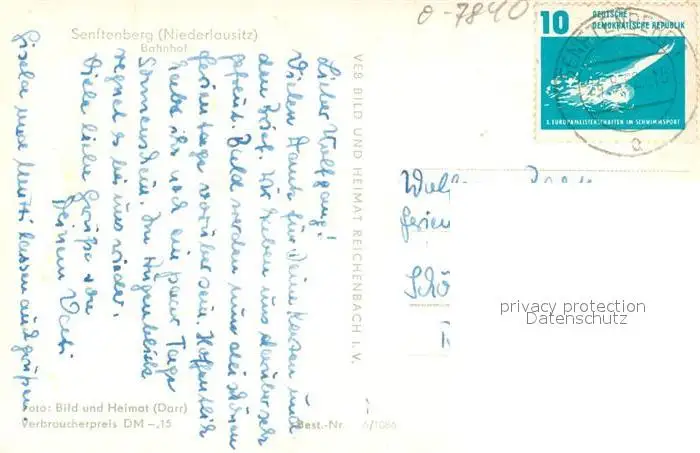 Senftenberg (Niederlausitz)
Bahnhof
Lieber Wolfgang!
Vielen Dank für Deine Karten und
den Brief. Wir haben uns darüber sehr
gefreut. Bald werden nun die schönen
Ferientage vorüber sein. Hoffentlich
habt ihr noch ein paar Tage
Sonnenschein. Im Augenblick
regnet es bei uns wieder.
Viele liebe Grüße von
Deinem Vati
Gisela und Mutti lassen auch grüßen.
Foto: Bild und Heimat (Darr)
Verbraucherpreis DM -,15
Best.-Nr. 6/1086
VEB BILD UND HEIMAT REICHENBACH I. V.
0-7840
10 DEUTSCHE
DEMOKRATISCHE REPUBLIK
X. EUROPAMEISTERSCHAFTEN IM SCHWIMMSPORT
a
Ferien
Schö
privacy protection
Datenschutz